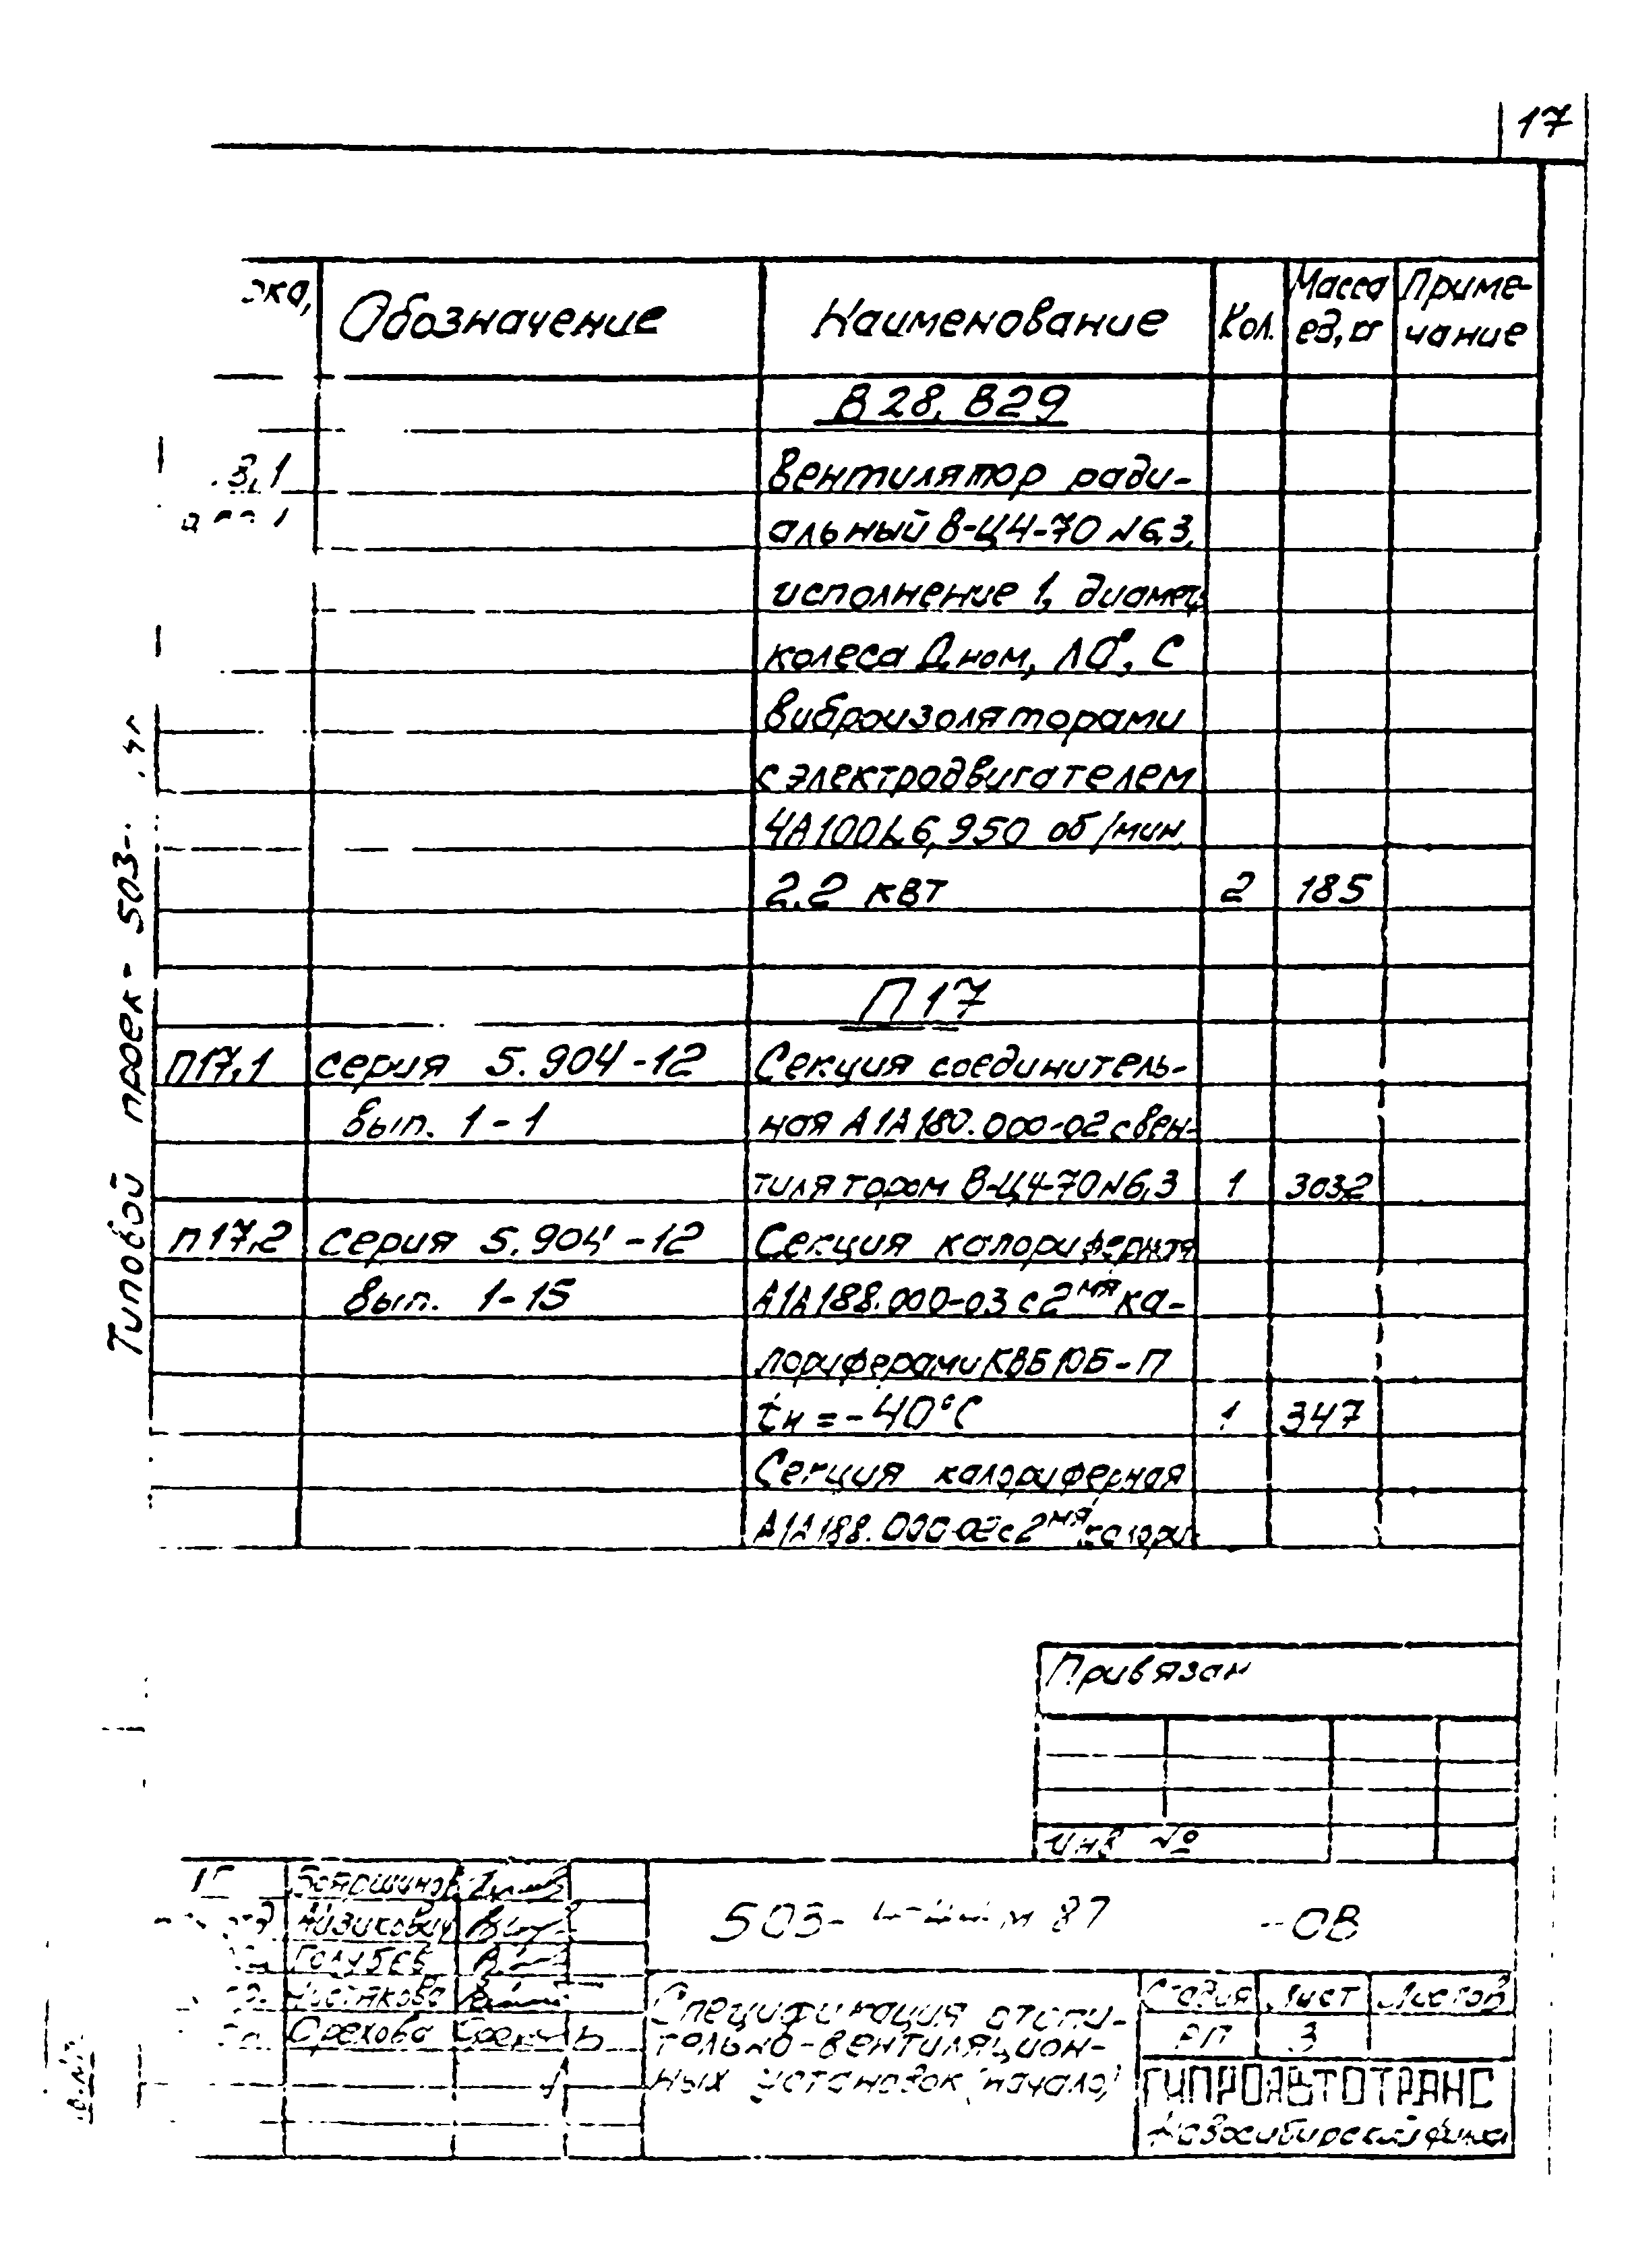 17
Обозначение Наименование Кол. Масса ед, кг Примечание
В28, В29
Вентилятор ради-
альный В-Ц4-70 №6,3,
исполнение 1, диамет.
колеса Дном, Л0°, С
виброизоляторами
с электродвигателем
4А100L6, 950 об/мин.
2,2 квт 2 185
П17
П17,1 серия 5.904-12 Секция соединитель-
вып. 1-1 ная А1А180.000-02 с вен-
тилятором В-Ц4-70№6,3 1 303,2
П17,2 серия 5.904-12 Секция калориферная
вып. 1-15 А1А188.000-03 с 2мя ка-
лориферами КВБ10Б-П
tн = -40°С 1 347
Секция калориферная
А1А188.000-02 с 2мя калори-
Типовой проек- 503-
Привязан
Инв №
Бояршинов
Айзикович
Голубев
Чистякова
Орехова
503- м 87 -ОВ
Спецификация отопи-
тельно-вентиляцион-
ных установок (начало)
Стадия Лист Листов
РП 3
ГИПРОАВТОТРАНС
Новосибирский филиал